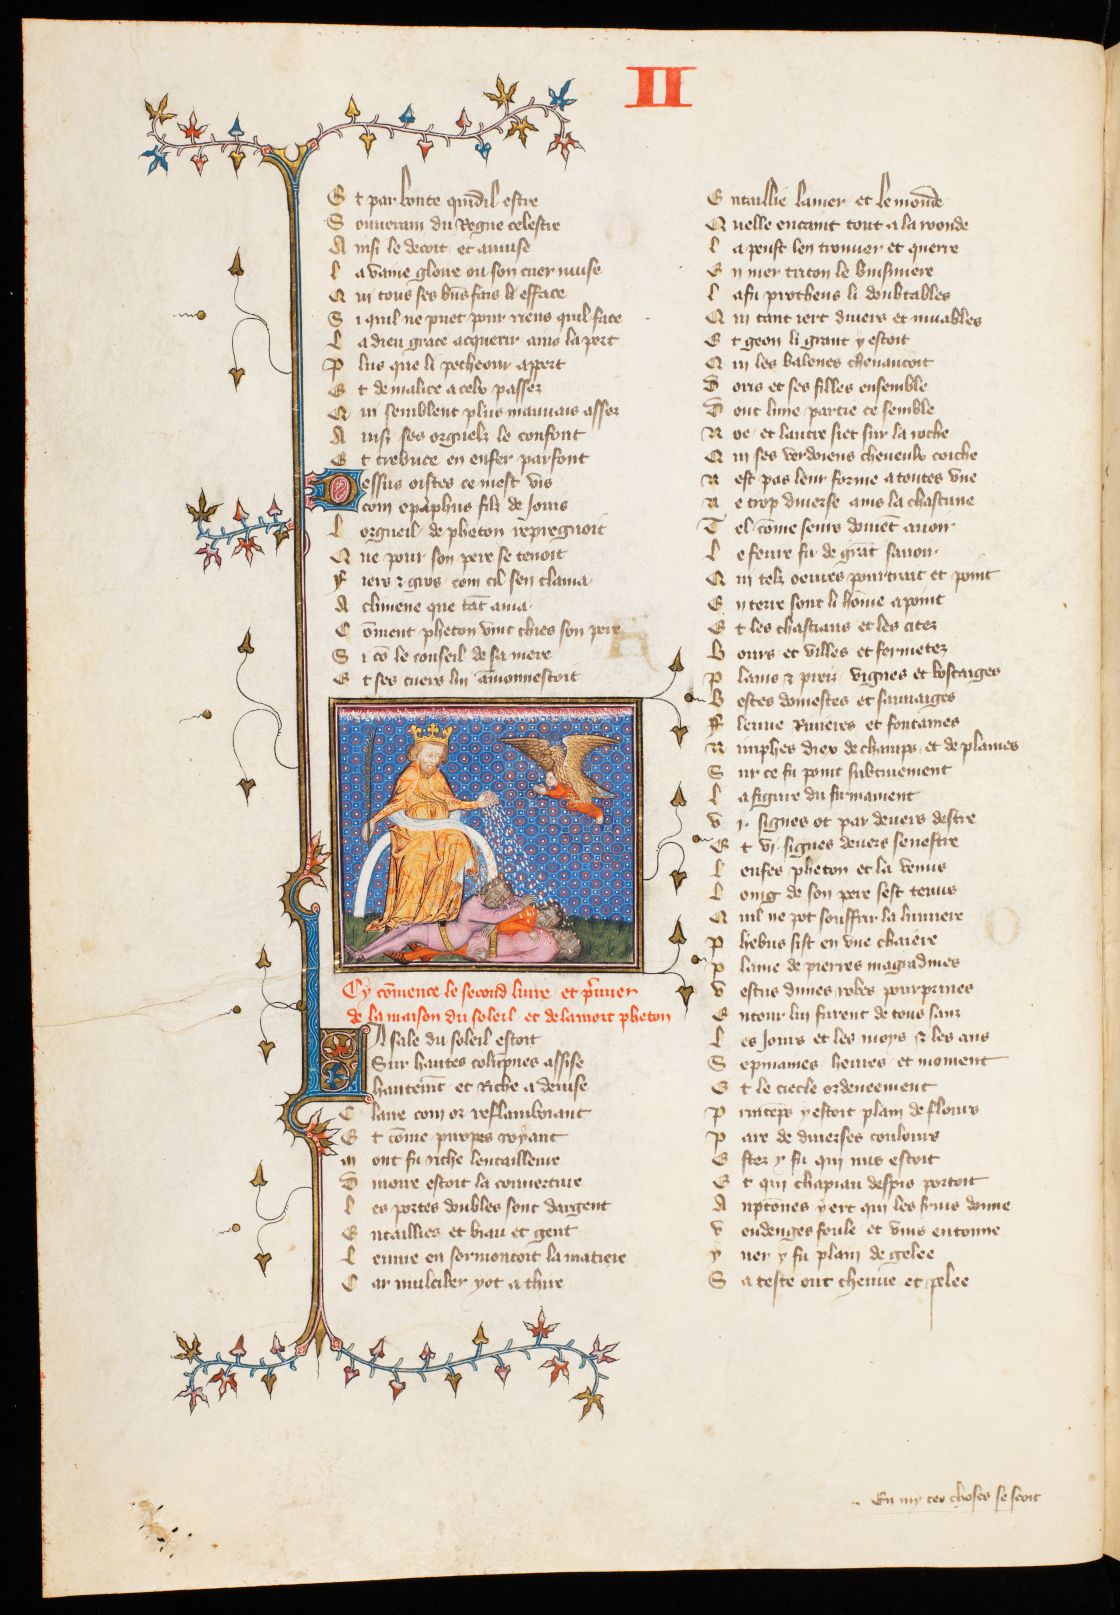 II
E t par bonte quidil estre
S ouuerain du Regne celestre
A insi le decoit et amuse
L a vaine gloire ou son cuer muse
Q ui tous ses bñs fais li efface
S i quil ne puet pour riens quil face
L a dieu grace acquerir ains la pert
P lus que li pecheour appert
E t de malice a celx passer
Q ui semblent plus mauuais asser
A insi ses orguelz le confont
E t trebuce en enfer parfont
D essus oistes ce mest vis
com epaphus filz de Jouis
L orgueil de pheton repregnoit
Q ue pour son pere se tenoit
F iers ⁊ gros com cil sen clama
A climene que tãt ama
C õment pheton vint chies son pere
S i cõ le conseil de sa mere
E t ses cuers lui amonnestoit
Cy cõmence le second liure et p̃mier
de la maison du soleil et de la mort pheton
L A sale du soleil estoit
Sur hautes colũpnes assise
hautemt et Riche a deuise
C laire com or reflamboiant
E t cõme piropes royant
M ont fu riche lentailleure
D iuoire estoit la couuerture
L es portes doubles sont dargent
E ntaillies et biau et gent
L euure en sormontoit la matiere
C ar mulciber yot a thire
E ntaillie la mer et le monde
Q uelle encaint tout a la roonde
L a peust len trouuer et querre
E n mer triton le buisiniere
L a fu protheus li doubtables
Q ui tant iert diuers et muables
E t geon li grant y estoit
Q ui les balenes cheuaucoit
D oris et ses filles ensemble
D ont lune partie ce semble
N oe et lautre siet sur la roche
Q ui ses verdoiens cheueulx coiche
N est pas leur forme a toutes vne
N e trop diuerse ains la chascune
T el cõme seurs doiuet auoir
L e feure fu de grãt sauoir
Q ui telz oeuures pourtrait et point
E n terre sont li hõme a point
E t les chastiaus et les citez
B ours et villes et fermetez
P lains ⁊ prez vignes et boscaiges
B estes domestes et sauuaiges
F leuue Riuieres et fontaines
N imphes diex de champs et de plaines
S ur ce fu point subtiuement
L a figure du firmament
V j. signes ot par deuers destre
E t vj. signes deuers senestre
L enfes pheton et la venus
L oing de son pere sest tenus
Q uil ne pot souffrir la lumiere
P hebus sist en vne chaiere
P laine de pierres magradines
V estus dunes robes pourprines
E ntour lui furent de tous sanz
L es Jours et les moys ⁊ les ans
S epmaines heures et moment
E t le ciecle ordeneement
P rintẽps y estoit plain de flours
P are de diuerses coulours
E stez y fu qui nus estoit
E t qui chapiau despis portoit
A uptõnes y ert qui les fruis donne
V endenges foule et vins entonne
Y uer y fu plain de gelee
S a teste ont chenue et pelee
En my ces choses se seoit